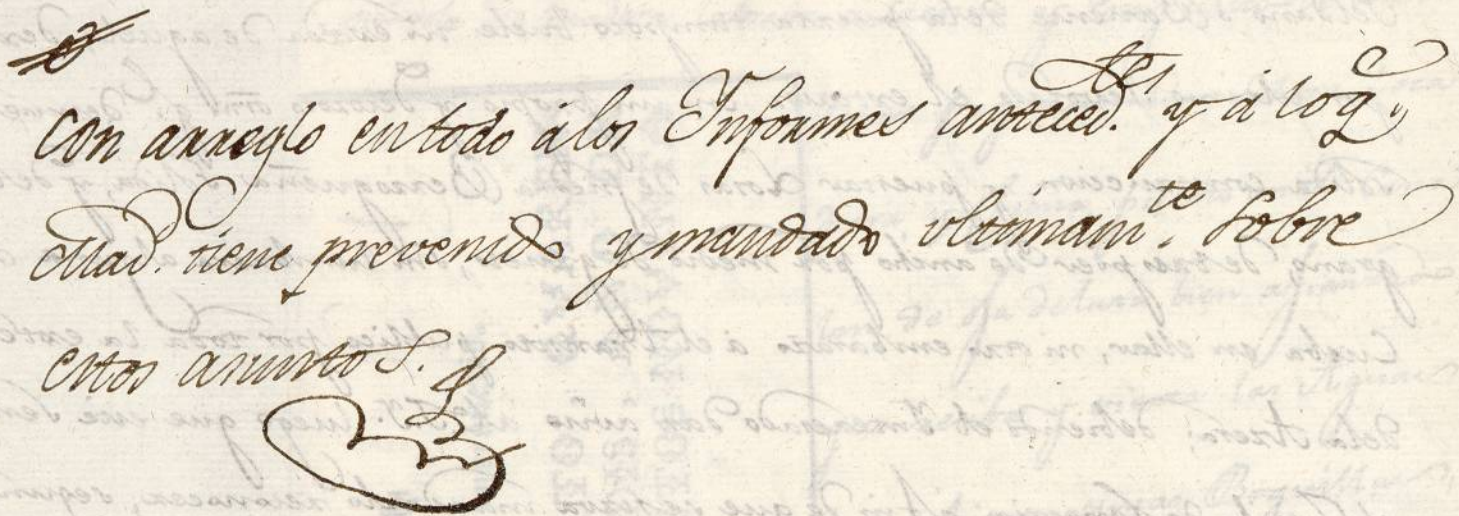 Con arreglo en todo á los Informes anteced.tes y á lo q.e
Mad. tiene prevenido y mandado ultimam.te sobre
estos asuntos.